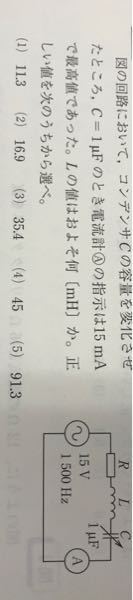 図の回路において，コンデンサCの容量を変化させ
たところ，C＝1μFのとき電流計Ⓐの指示は15mA
で最高値であった。Lの値はおよそ何〔mH〕か。正
しい値を次のうちから選べ。
(1) 11.3 (2) 16.9 (3) 35.4 (4) 45 (5) 91.3
R L C
1μF
15 V
1 500 Hz
A